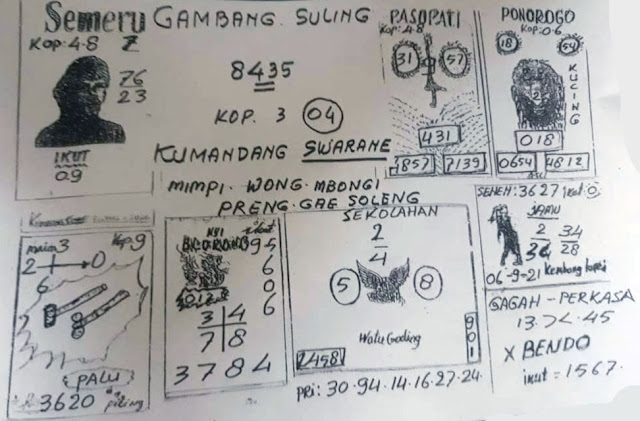 Semeru
KOP: 4-8 7
76
23
IKUT
09
GAMBANG SULING
8435
KOP. 3 04
KUMANDANG SWARANE
MIMPI. WONG. MBONGI
PRENG. GAG SOLENG
PASOPATI
Kop: 4-8
31 57
431
1857 7139
PONOROGO
KOP: 06
18 54
KUCING
2
018
0654 4812
main 3 Kop. 9
2 0
6
7
PALU
3620 piling
NYI
ikut
95
6
0
6
4012
3 4
7 8
3784
SEKOLAHAN
2
4
5 8
Watu Gading
901
2458
PRI: 30-94-14-16-27-24
SENEN: 3627 ikut 0
JAMU
2 34
34 28
06-9-21 Kembang kopi
GAGAH - PERKASA
13. >< .45
X BENDO
ikut = 1567.